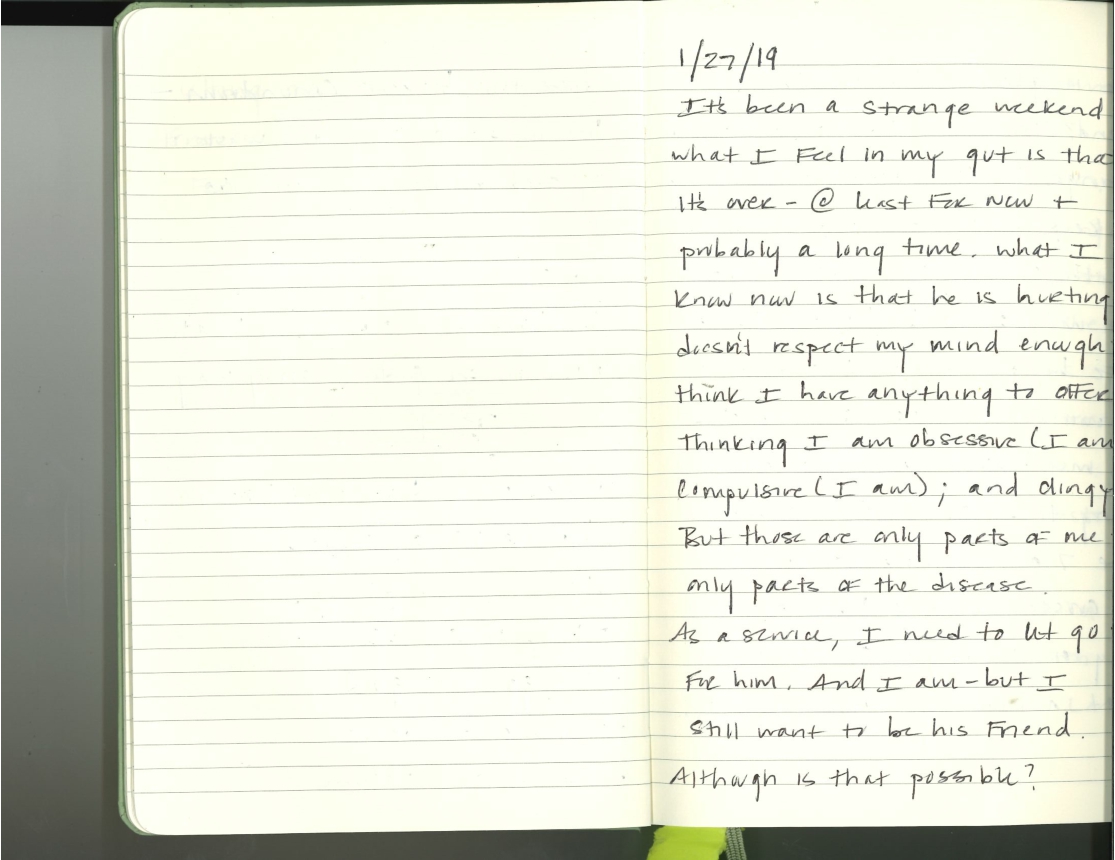 1/27/19
It's been a strange weekend
what I Feel in my gut is tha
it's over - @ least For now +
probably a long time. what I
know now is that he is hurting
doesn't respect my mind enough
think I have anything to offer
thinking I am obsessive (I am
compulsive (I am); and clingy
But those are only parts of me
only parts of the disease.
As a service, I need to let go
For him. And I am - but I
still want to be his Friend.
Although is that possible?